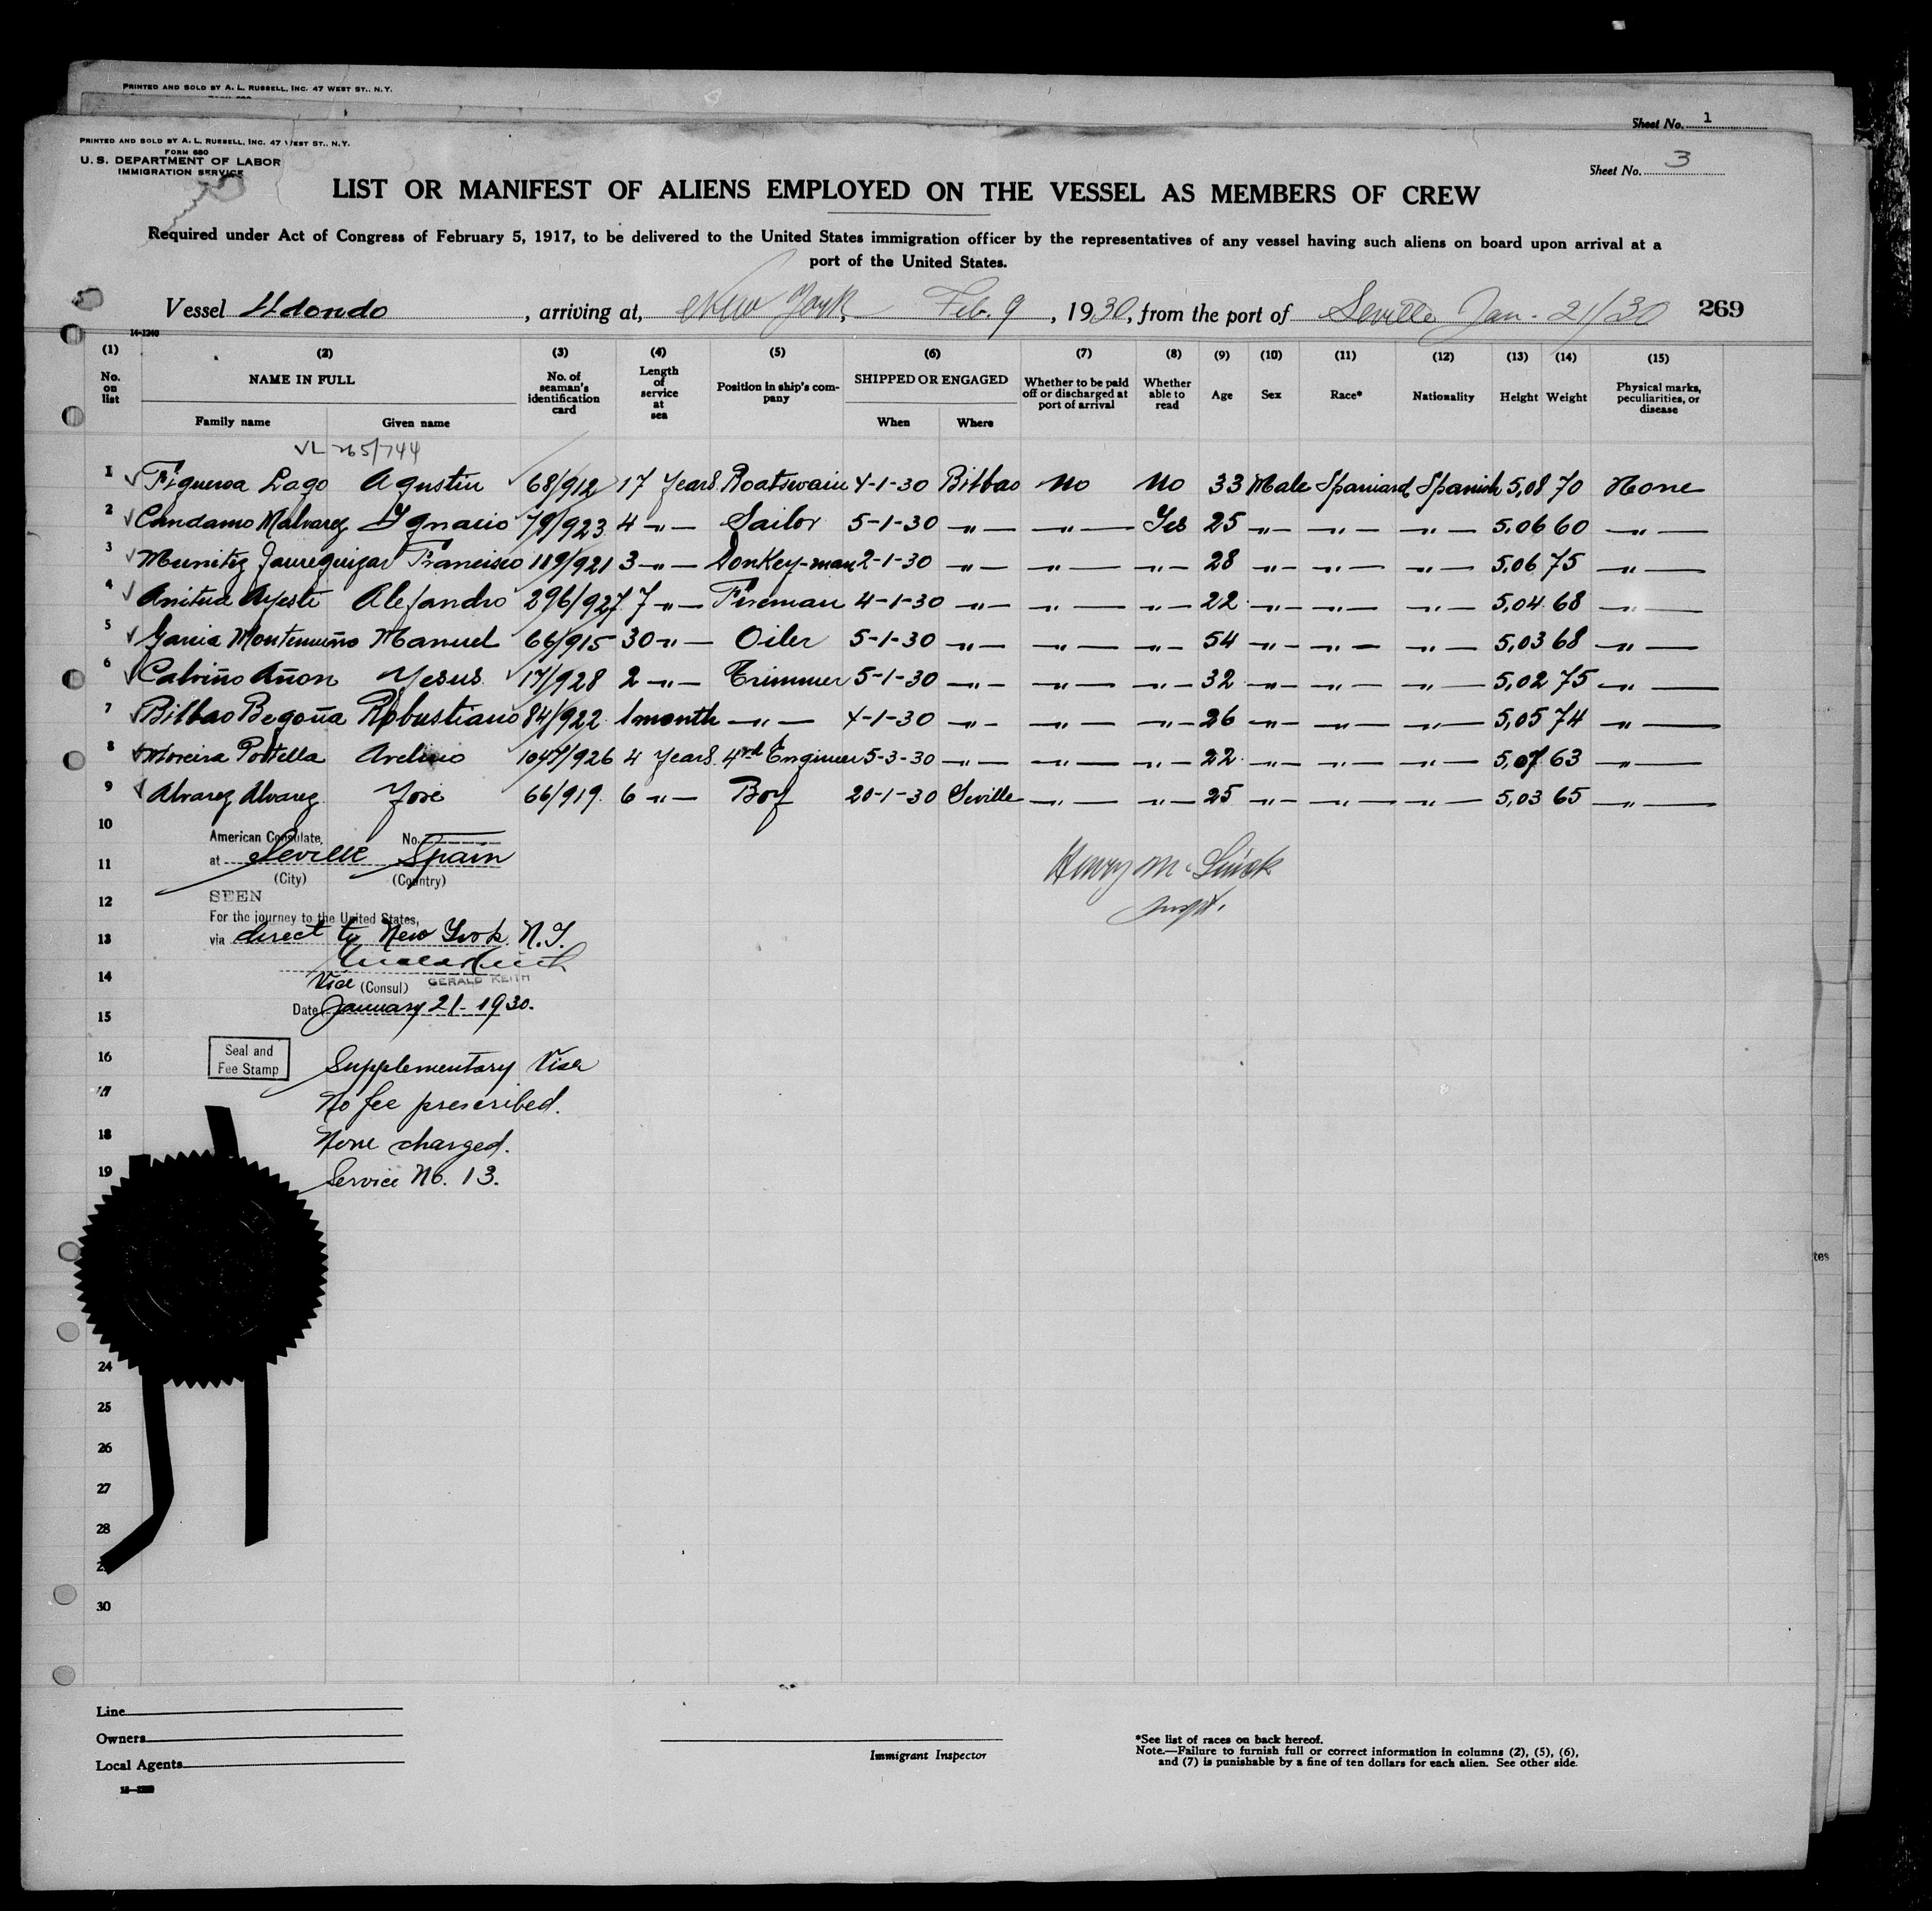 PRINTED AND SOLD BY A. L. RUSSELL, INC. 47 WEST ST., N.Y.
Sheet No. 1
PRINTED AND SOLD BY A. L. RUSSELL, INC. 47 WEST ST., N.Y.
FORM 680
U. S. DEPARTMENT OF LABOR
IMMIGRATION SERVICE
Sheet No. 3
LIST OR MANIFEST OF ALIENS EMPLOYED ON THE VESSEL AS MEMBERS OF CREW
Required under Act of Congress of February 5, 1917, to be delivered to the United States immigration officer by the representatives of any vessel having such aliens on board upon arrival at a
port of the United States.
Vessel Udondo, arriving at, New York, Feb. 9, 1930, from the port of Seville Jan. 21/30 269
14-1240
(1) (2) (3) (4) (5) (6) (7) (8) (9) (10) (11) (12) (13) (14) (15)
No. on list NAME IN FULL No. of seaman's identification card Length of service at sea Position in ship's company SHIPPED OR ENGAGED Whether to be paid off or discharged at port of arrival Whether able to read Age Sex Race* Nationality Height Weight Physical marks, peculiarities, or disease
Family name Given name When Where
1 Figueroa Lago Agustin 68/912 17 Years Boatswain 4-1-30 Bilbao No No 33 Male Spaniard Spanish 5,08 70 None
2 Candamo Malvarez Ygnacio 79/923 4 -"- Sailor 5-1-30 -"- -"- Yes 25 -"- -"- -"- 5,06 60 -"-
3 Munitiz Jaureguizar Francisco 119/921 3 -"- Donkey-man 2-1-30 -"- -"- -"- 28 -"- -"- -"- 5,06 75 -"-
4 Anitua Ayesti Alejandro 296/927 7 -"- Fireman 4-1-30 -"- -"- -"- 22 -"- -"- -"- 5,04 68 -"-
5 Garcia Montemuiño Manuel 66/915 30 -"- Oiler 5-1-30 -"- -"- -"- 54 -"- -"- -"- 5,03 68 -"-
6 Calviño Añon Yesus 17/928 2 -"- Trimmer 5-1-30 -"- -"- -"- 32 -"- -"- -"- 5,02 75 -"-
7 Bilbao Begoña Robustiano 84/922 1 month -"- 4-1-30 -"- -"- -"- 26 -"- -"- -"- 5,05 74 -"-
8 Moreira Portella Avelino 1047/926 4 Years 4rd Engineer 5-3-30 -"- -"- -"- 22 -"- -"- -"- 5,07 63 -"-
9 Alvarez Alvarez Jose 66/919 6 -"- Boy 20-1-30 Seville -"- -"- 25 -"- -"- -"- 5,03 65 -"-
10
American Consulate, No.
11
at Seville Spain
(City) (Country)
SEEN
12
For the journey to the United States,
13
via direct to New York N.Y.
14
Vice (Consul) GERALD KEITH
15
Date January 21-1930.
16
Seal and
Fee Stamp
Supplementary Visa
17
No fee prescribed.
18
None charged.
19
Service No. 13.
24
25
26
27
28
30
tes
Line
Owners
Local Agents
Immigrant Inspector
*See list of races on back hereof.
Note.—Failure to furnish full or correct information in columns (2), (5), (6),
and (7) is punishable by a fine of ten dollars for each alien. See other side.